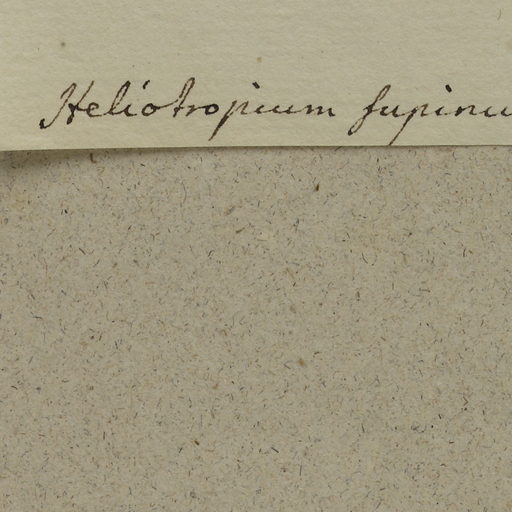 Heliotropium supinu